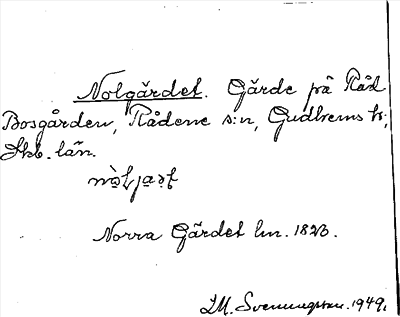 Nolgärdet. Gärde på Råd
Bosgården, Rådene s:n, Gudhems h;
Skb. län.
Norra Gärdet lm. 1823.
I.M. Svenungsson. 1949.